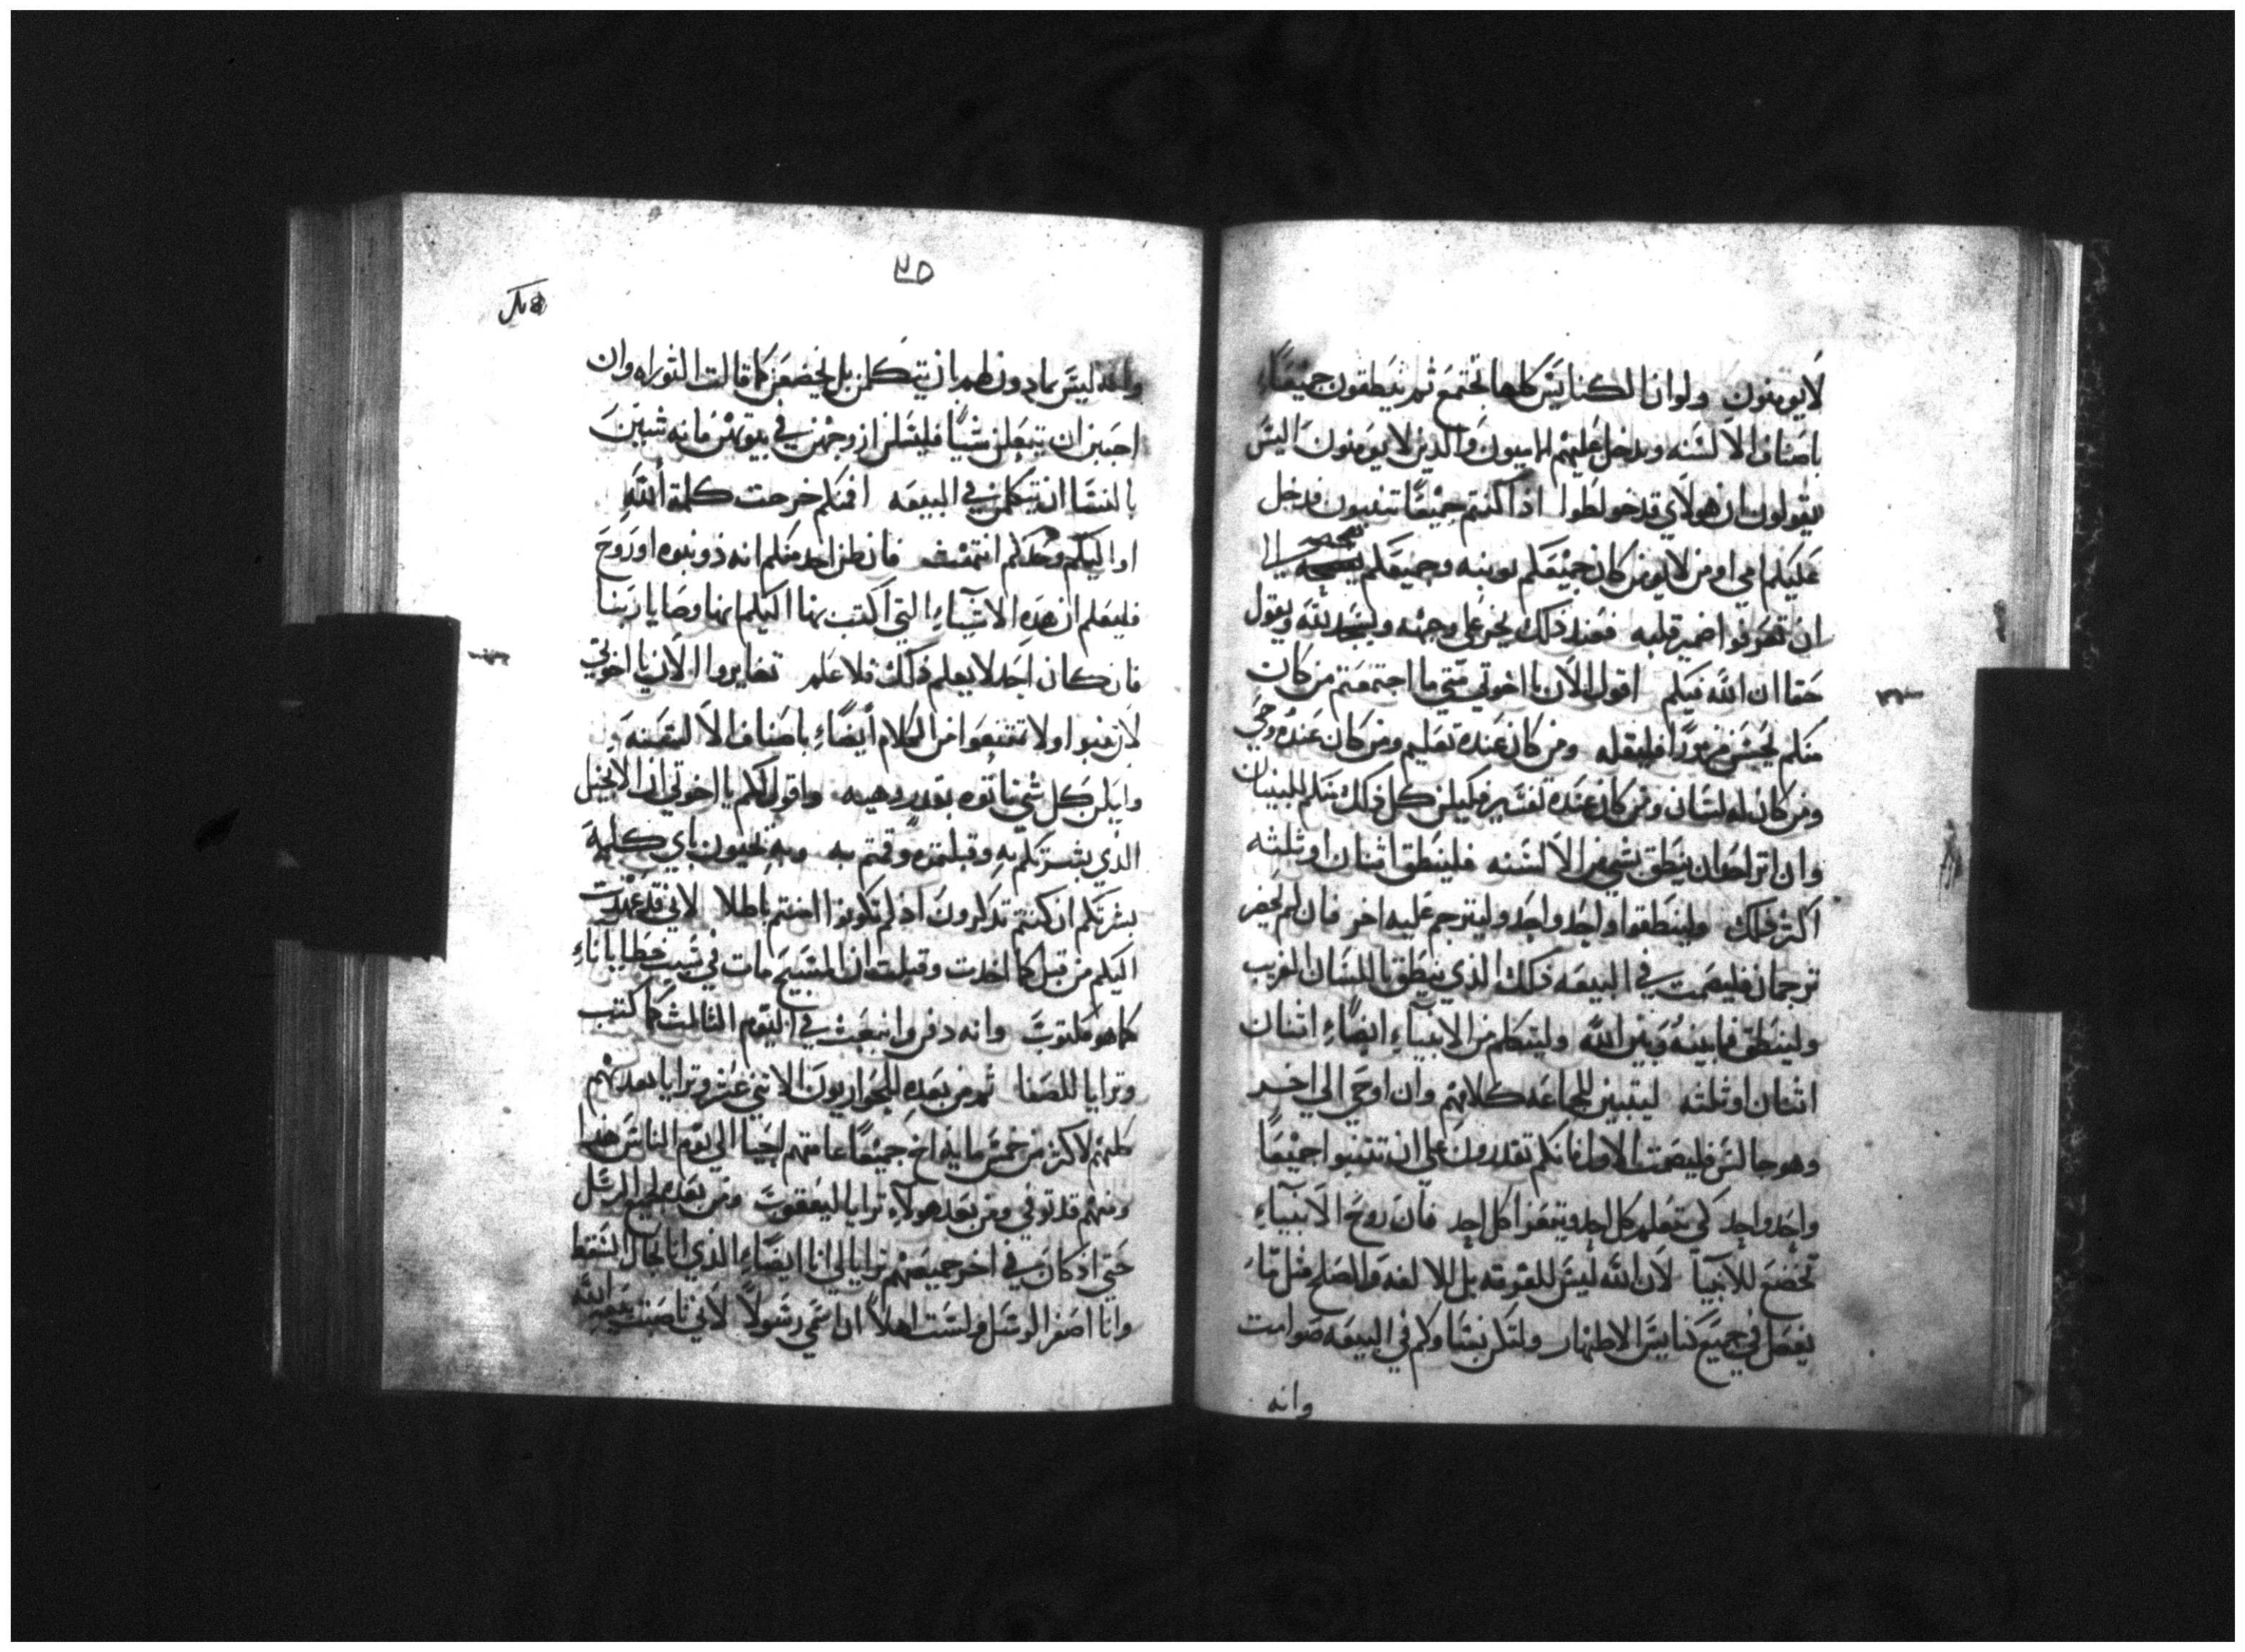 لايومنون ولو ان الكنايس كلها تجتمع ثم ينطقون جميعاً
باصناف الالسنه ويدخل عليهم الاميون والذين لايومنون اليس
يقولون ان هولاي قد خولطوا اذا كنتم جميعاً تتنبيون فدخل
عليكم امي او من لايومن كان جميعكم يوبنه وجميعكم
ان تعرفوا ضمير قلبه فعند ذلك يخر علي وجهه ويسجد لله ويقول
حقا ان الله فيكم اقول الان يا اخوتي متي ما اجتمعتم من كان
منكم يحسن مزموراً فليقله ومن كان عنده تعليم ومن كان عنده وحي
ومن كان له لسان ومن كان عنده تفسير فليكن كل ذلك منكم للبنيان
وان اثر احد ان ينطق بشي من الالسنه فلينطق اثنان او ثلثه
اكثر ذلك ولينطقوا واحد واحد وليترجم عليه اخر فان لم يحضر
ترجمان فليصمت في البيعه ذلك الذي ينطق باللسان الغريب
ولينطق فيما بينه وبين الله وليتكلم من الانبياء ايضاً اثنان
اثنان او ثلثه ليتبين للجماعه كلامهم وان اوحي الي اخر
وهو جالس فليصمت الاول فانكم تقدرون علي ان تتنبوا جميعاً
واحد واحد لكي يتعلم كل احد ويتعزا كل احد فان روح الانبياء
تخضع للانبيا لان الله ليس للفرقه بل للالفه والصلح مثل ما
يفعل في جميع كنايس الاطهار ولتكن نساوكم في البيعه صوامت
وانه
٢٥
وانه ليس بماذون لهن ان يتكلمن بل يخضعن كما قالت التوراه وان
احببن ان يتعلمن شياً فليسلن ازوجهن في بيوتهن فانه شين
بالنسا ان يتكلمن في البيعه افمنكم خرجت كلمة الله
او اليكم وحدكم انتهت فان ظن احد منكم انه ذو نبوه او روح
فليعلم ان هذه الاشياء التي اكتب بها اليكم انها وصايا ربنا
فان كان احد لا يعلم ذلك فلا علم تغايروا الان يا اخوتي
لان تنبوا ولا تمتنعوا من الكلام ايضاً باصناف الالسنه
وليكن كل شي تاتوه بقدر وهيه واقول لكم يا اخوتي ان الانجيل
الذي بشرتكم به وقبلتموه وقمتم به وبه تحيون باي كلمة
بشرتكم ان كنتم تذكرون اذ لم تكونوا امنتم باطلا لاني قد عهدت
اليكم من قبل كما اخذت وقبلت ان المسيح مات في سبب خطايانا
كما هو مكتوب وانه دفن وانبعث في اليوم الثالث كما كتب
وترايا للصفا ثم من بعده للحواريون الاثني عشر وترايا بعدهم
لاكثر من خمس مايه اخ جميعاً عامتهم احيا الي يوم الناس هذا
ومنهم قد توفي ومن بعد هولاء ترايا ليعقوب ومن بعده لجميع الرسل
حتي اذ كان في اخر جميعهم ترايا لي انا ايضاً الذي انا كحال السقط
وانا اصغر الرسل ولست اهلاً ان اسمي رسولاً لاني ناصبت بيعة الله